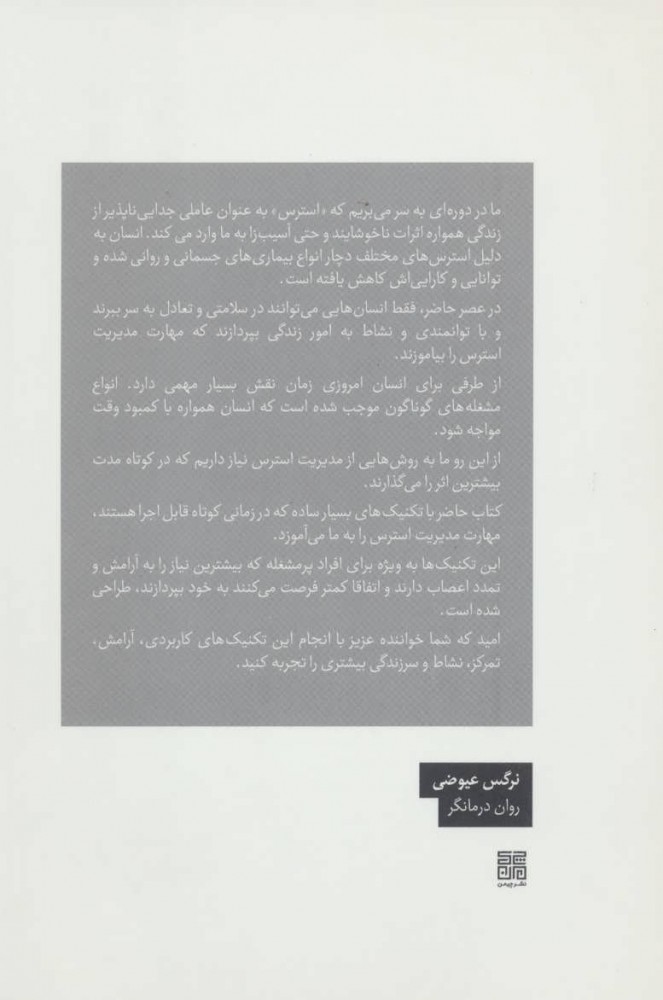 ما در دوره‌ای به سر می‌بریم که «استرس» به عنوان عاملی جدایی‌ناپذیر از
زندگی همواره اثرات ناخوشایند و حتی آسیب‌زا به ما وارد می کند. انسان به
دلیل استرس‌های مختلف دچار انواع بیماری‌های جسمانی و روانی شده و
توانایی و کارایی‌اش کاهش یافته است.
در عصر حاضر، فقط انسان‌هایی می‌توانند در سلامتی و تعادل به سر ببرند
و با توانمندی و نشاط به امور زندگی بپردازند که مهارت مدیریت
استرس را بیاموزند.
از طرفی برای انسان امروزی زمان نقش بسیار مهمی دارد. انواع
مشغله‌های گوناگون موجب شده است که انسان همواره با کمبود وقت
مواجه شود.
از این رو ما به روش‌هایی از مدیریت استرس نیاز داریم که در کوتاه مدت
بیشترین اثر را می‌گذارند.
کتاب حاضر با تکنیک‌های بسیار ساده که در زمانی کوتاه قابل اجرا هستند،
مهارت مدیریت استرس را به ما می‌آموزد.
این تکنیک‌ها به ویژه برای افراد پرمشغله که بیشترین نیاز را به آرامش و
تمدد اعصاب دارند و اتفاقا کمتر فرصت می‌کنند به خود بپردازند، طراحی
شده است.
امید که شما خواننده عزیز با انجام این تکنیک‌های کاربردی، آرامش،
تمرکز، نشاط و سرزندگی بیشتری را تجربه کنید.
نرگس عیوضی
روان درمانگر
نشر چیمن